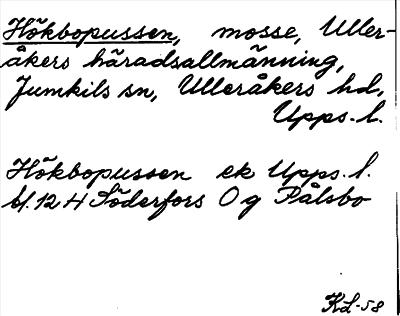 Hökbopussen, mosse, Uller-
åkers häradsallmänning,
Jumkils sn, Ulleråkers hd,
Upps. l.
Hökbopussen ek Upps. l.
bl. 12 H Söderfors O g Pålsbo
KL-58